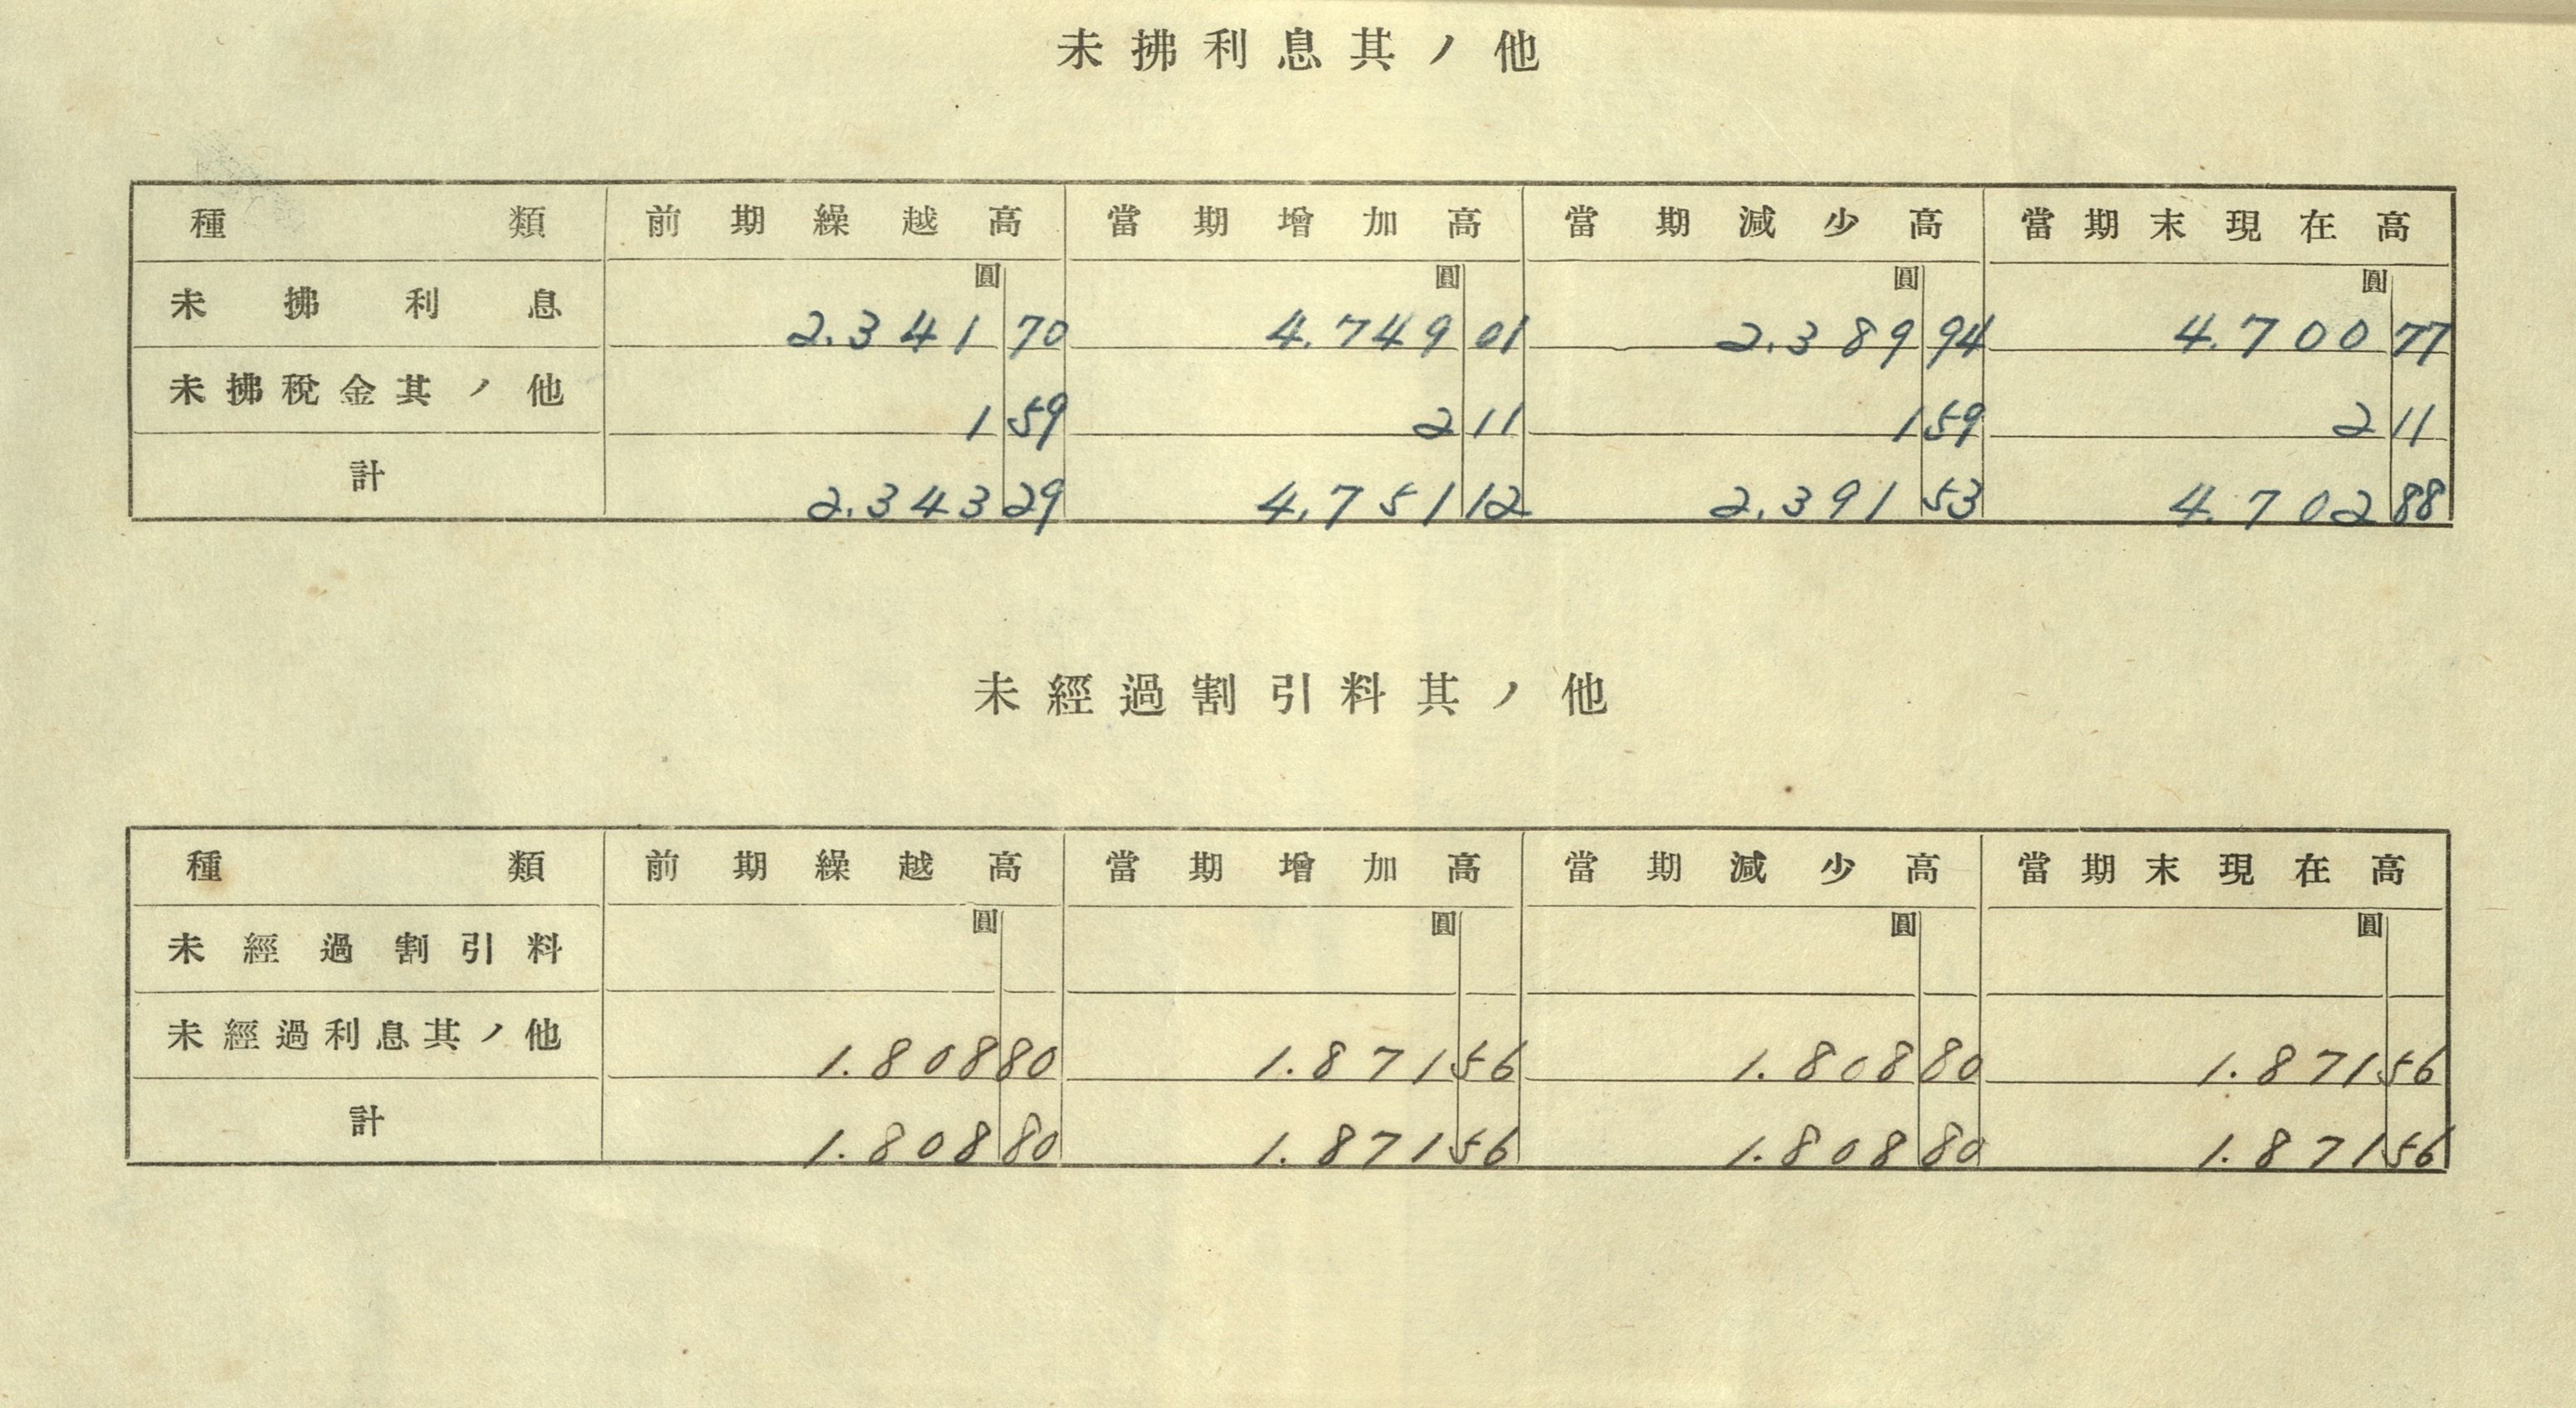 未拂利息其ノ他
種類 前期繰越高 當期增加高 當期減少高 當期末現在高
圓 圓 圓 圓
未拂利息 2.341 70 4.749 01 2.389 94 4.700 77
未拂稅金其ノ他 1 59 2 11 1 59 2 11
計 2.343 29 4.751 12 2.391 53 4.702 88
未經過割引料其ノ他
種類 前期繰越高 當期增加高 當期減少高 當期末現在高
圓 圓 圓 圓
未經過割引料
未經過利息其ノ他 1.808 80 1.871 56 1.808 80 1.871 56
計 1.808 80 1.871 56 1.808 80 1.871 56